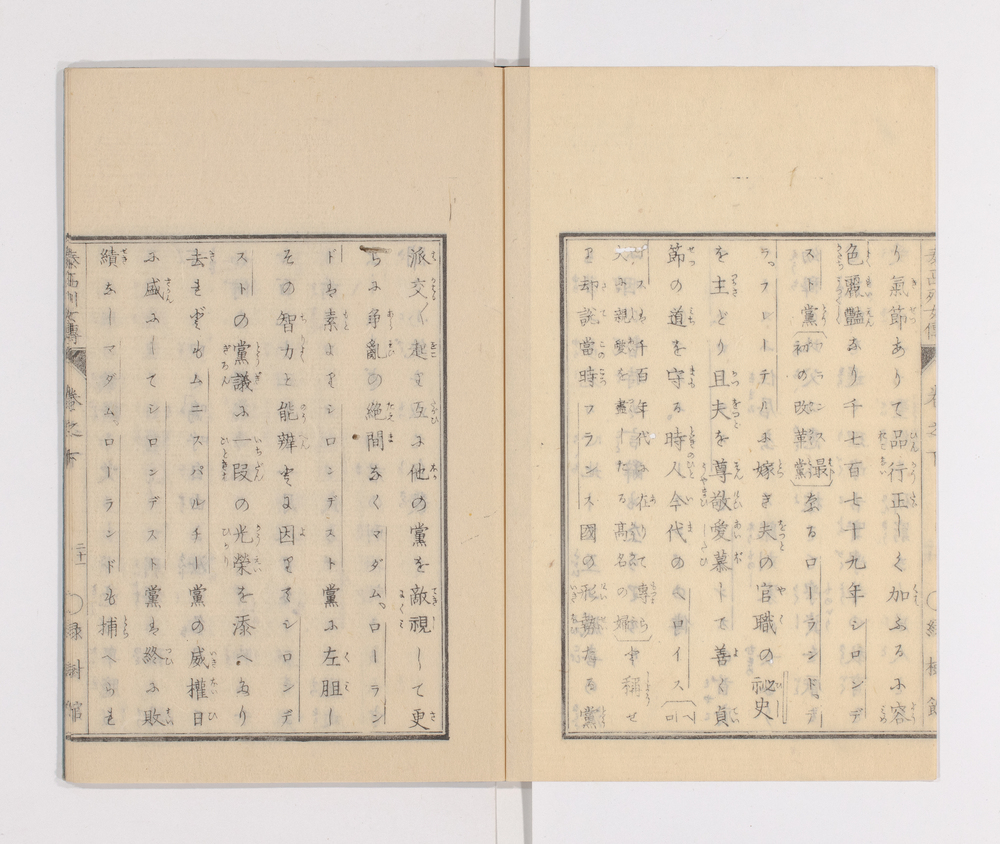 り氣節ありて品行正しく加ふるに容
色麗艶なり千七百七十九年シロンデ
スト黨(初の改革黨)なるローランドデ
ラプローテルに嫁き夫の官職の祕史
を主どり且夫を尊敬愛慕して善く貞
節の道を守る時人今代のヘロイス(
千百年代に在りて
親愛を盡したる高名の婦)と稱せ
り却説當時フランス國の形勢たる黨
派交〱起て互に他の黨を敵視して更
に爭亂の絶間なくマダム。ローラン
ドは素よりシロンデスト黨に左胆し
その智力と能辯とに因てシロンデ
ストの黨議に一段の光榮を添へたり
去れどもムニスパルチー黨の威權日
に盛にしてシロンデスト黨は終に敗
績なしマダムローランドも捕へられ
泰西列女傳 卷之下 二十一 緑樹館